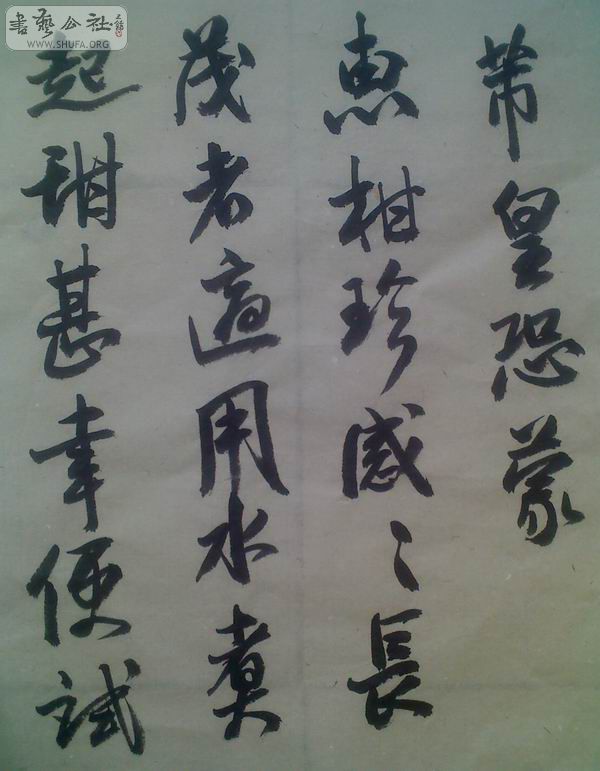 帶皇恐蒙
惠柑珍感〻長
茂者適用水煮
起甜甚幸便試
書藝公社
WWW.SHUFA.ORG